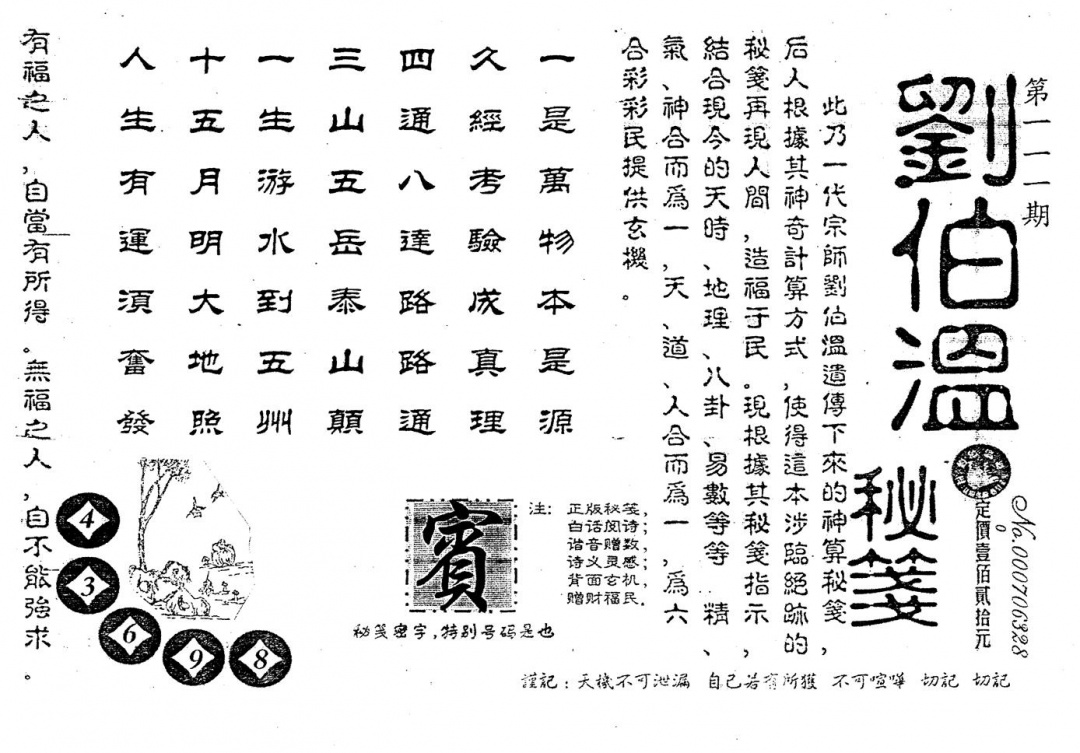 第一一一期
劉伯溫
秘箋
No.000706328
定價壹佰貳拾元
此乃一代宗師劉伯溫遺傳下來的神算秘箋，
后人根據其神奇計算方式，使得這本涉臨絕跡的
秘箋再現人間，造福于民。現根據其秘箋指示，
結合現今的天時、地理、八卦、易數等等 精、
氣、神合而爲一，天、道、人合而爲一，爲六
合彩彩民提供玄機。
一是萬物本是源
久經考驗成真理
四通八達路路通
三山五岳泰山顛
一生游水到五州
十五月明大地照
人生有運須奮發
有福之人，自當有所得。無福之人，自不能強求。
4
3
6
9
8
賓
秘笺密字，特别号码是也
注：正版秘笺，
白话阅诗；
谐音赠数，
诗义灵感；
背面玄机，
赠财福民。
謹記：天機不可泄漏 自己若有所獲 不可喧嘩 切記 切記